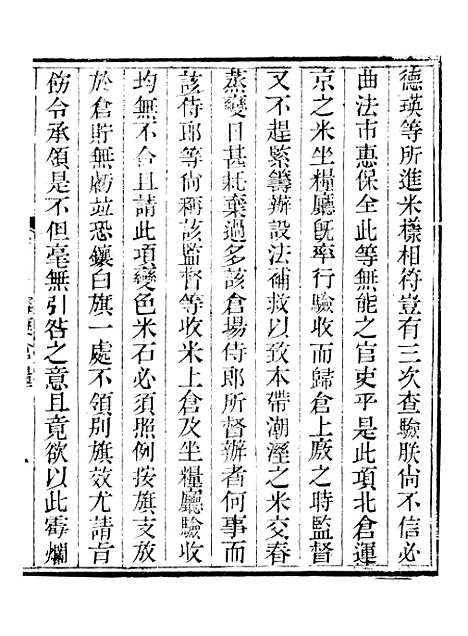 德瑛等所進米樣相符豈有三次查驗朕尚不信必
曲法市惠保全此等無能之官吏乎是此項北倉運
京之米坐糧廳旣率行驗收而歸倉上厫之時監督
又不趕緊籌辦設法補救以致本帶潮溼之米交春
蒸變日甚耗棄過多該倉場侍郎所督辦者何事而
該侍郎等尙稱該監督等收米上倉及坐糧廳驗收
均無不合且請此項變色米石必須照例按旗支放
於倉貯無虧並恐鑲白旗一處不領別旗效尤請旨
飭令承領是不但毫無引咎之意且竟欲以此霉爛